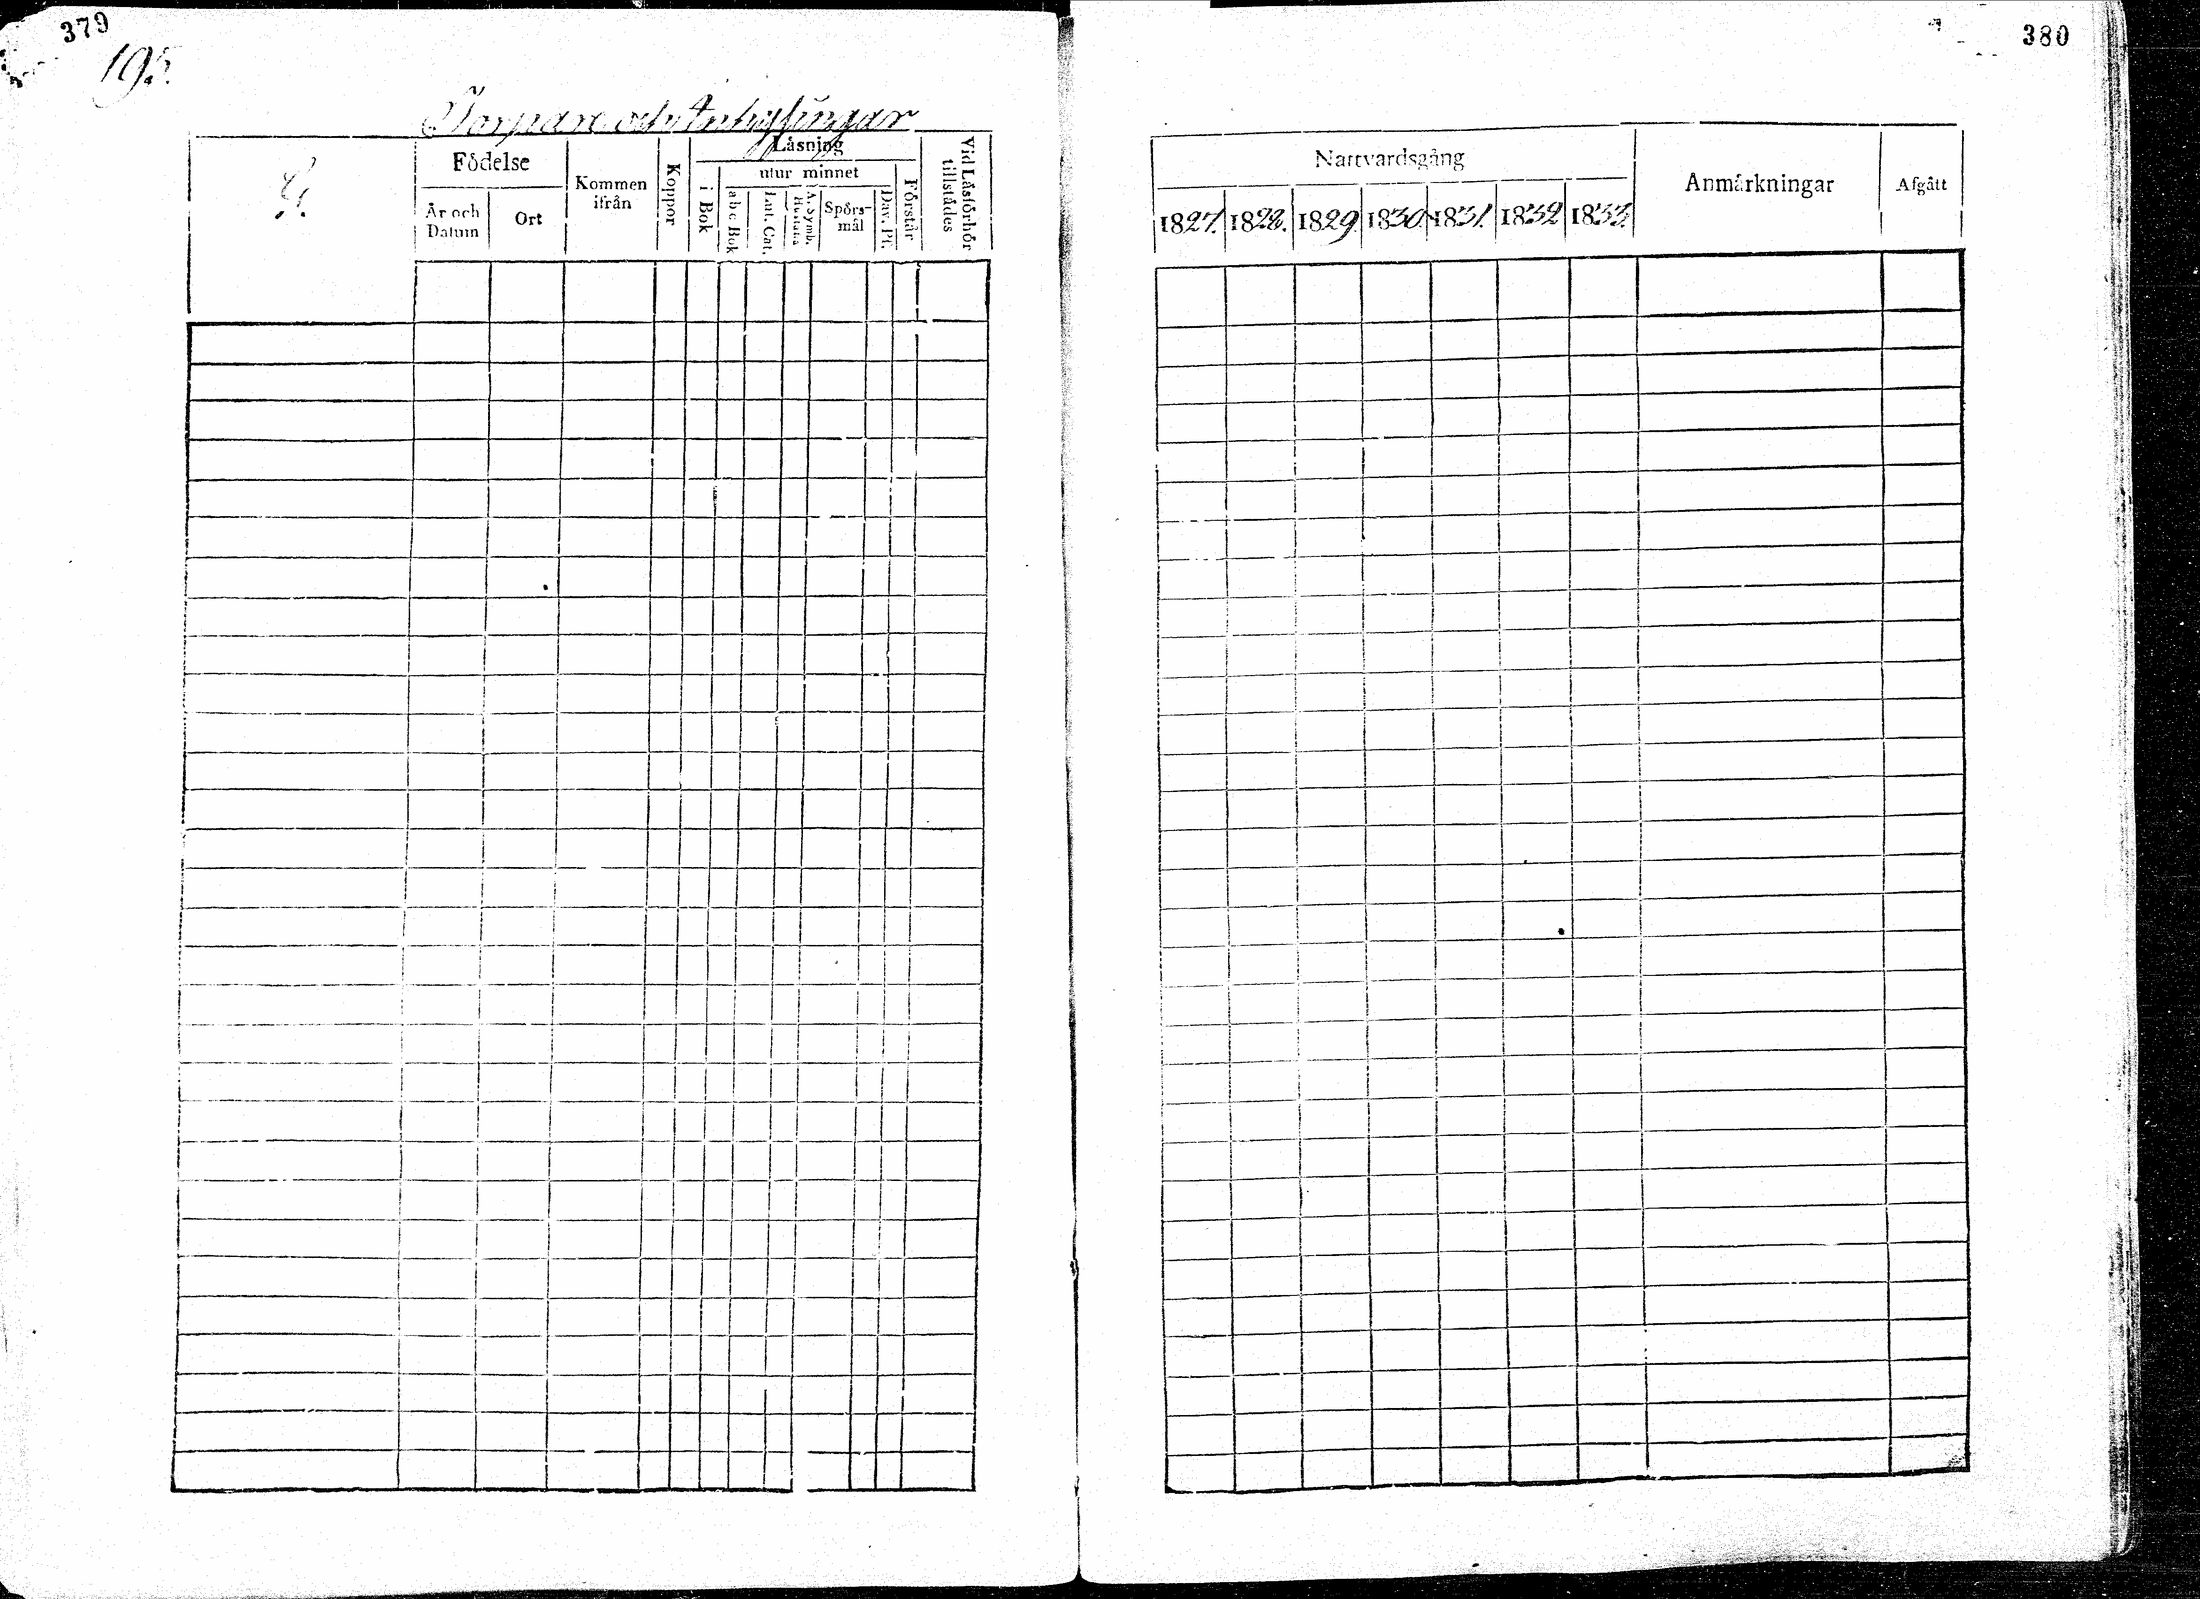 379
195.
Torpare och Inhysingar
G.
Födelse
År och
Datum
Ort
Kommen
ifrån
Koppor
Läsning
i Bok
utur minnet
abc Bok
Lut. Cat.
A. Symb.
Hustafla
Spörs-
mål
Dav. Ps.
Förstår
Vid Läsförhör
tillstädes
380
Nattvardsgång
1827.
1828.
1829.
1830.
1831.
1832
1833.
Anmärkningar
Afgått